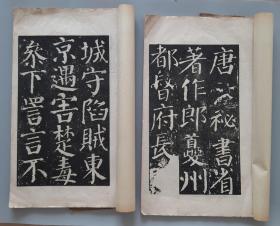 唐故祕書省
著作郎夔州
都督府長
城守陷賊東
京遇害楚毒
叅下詈言不